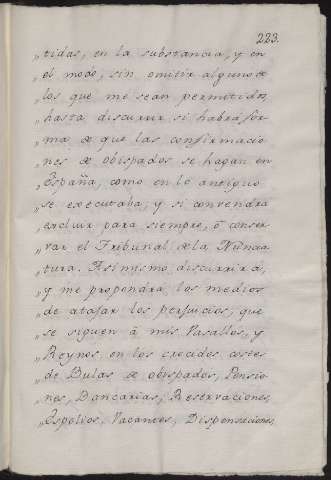 223.
"tidas, en la substancia, y en
"el modo, sin omitir alguno de
"los que me sean permitidos,
"hasta discurrir si habrá for
"ma de que las confirmacio
"nes de obispados se hagan en
"España, como en lo antiguo
"se executaba; y si convendrá
"excluir para siempre, ó conser
"var el Tribunal de la Nuncia
"tura. Asimismo discurrirá,
"y me propondrá los medios
"de atajar los perjuicios, que
"se siguen á mis Vasallos, y
"Reynos, en los crecidos costes
"de Bulas de obispados, Pensio
"nes, Bancarias, Reservaciones,
"Espolios, Vacantes, Dispensaciones,